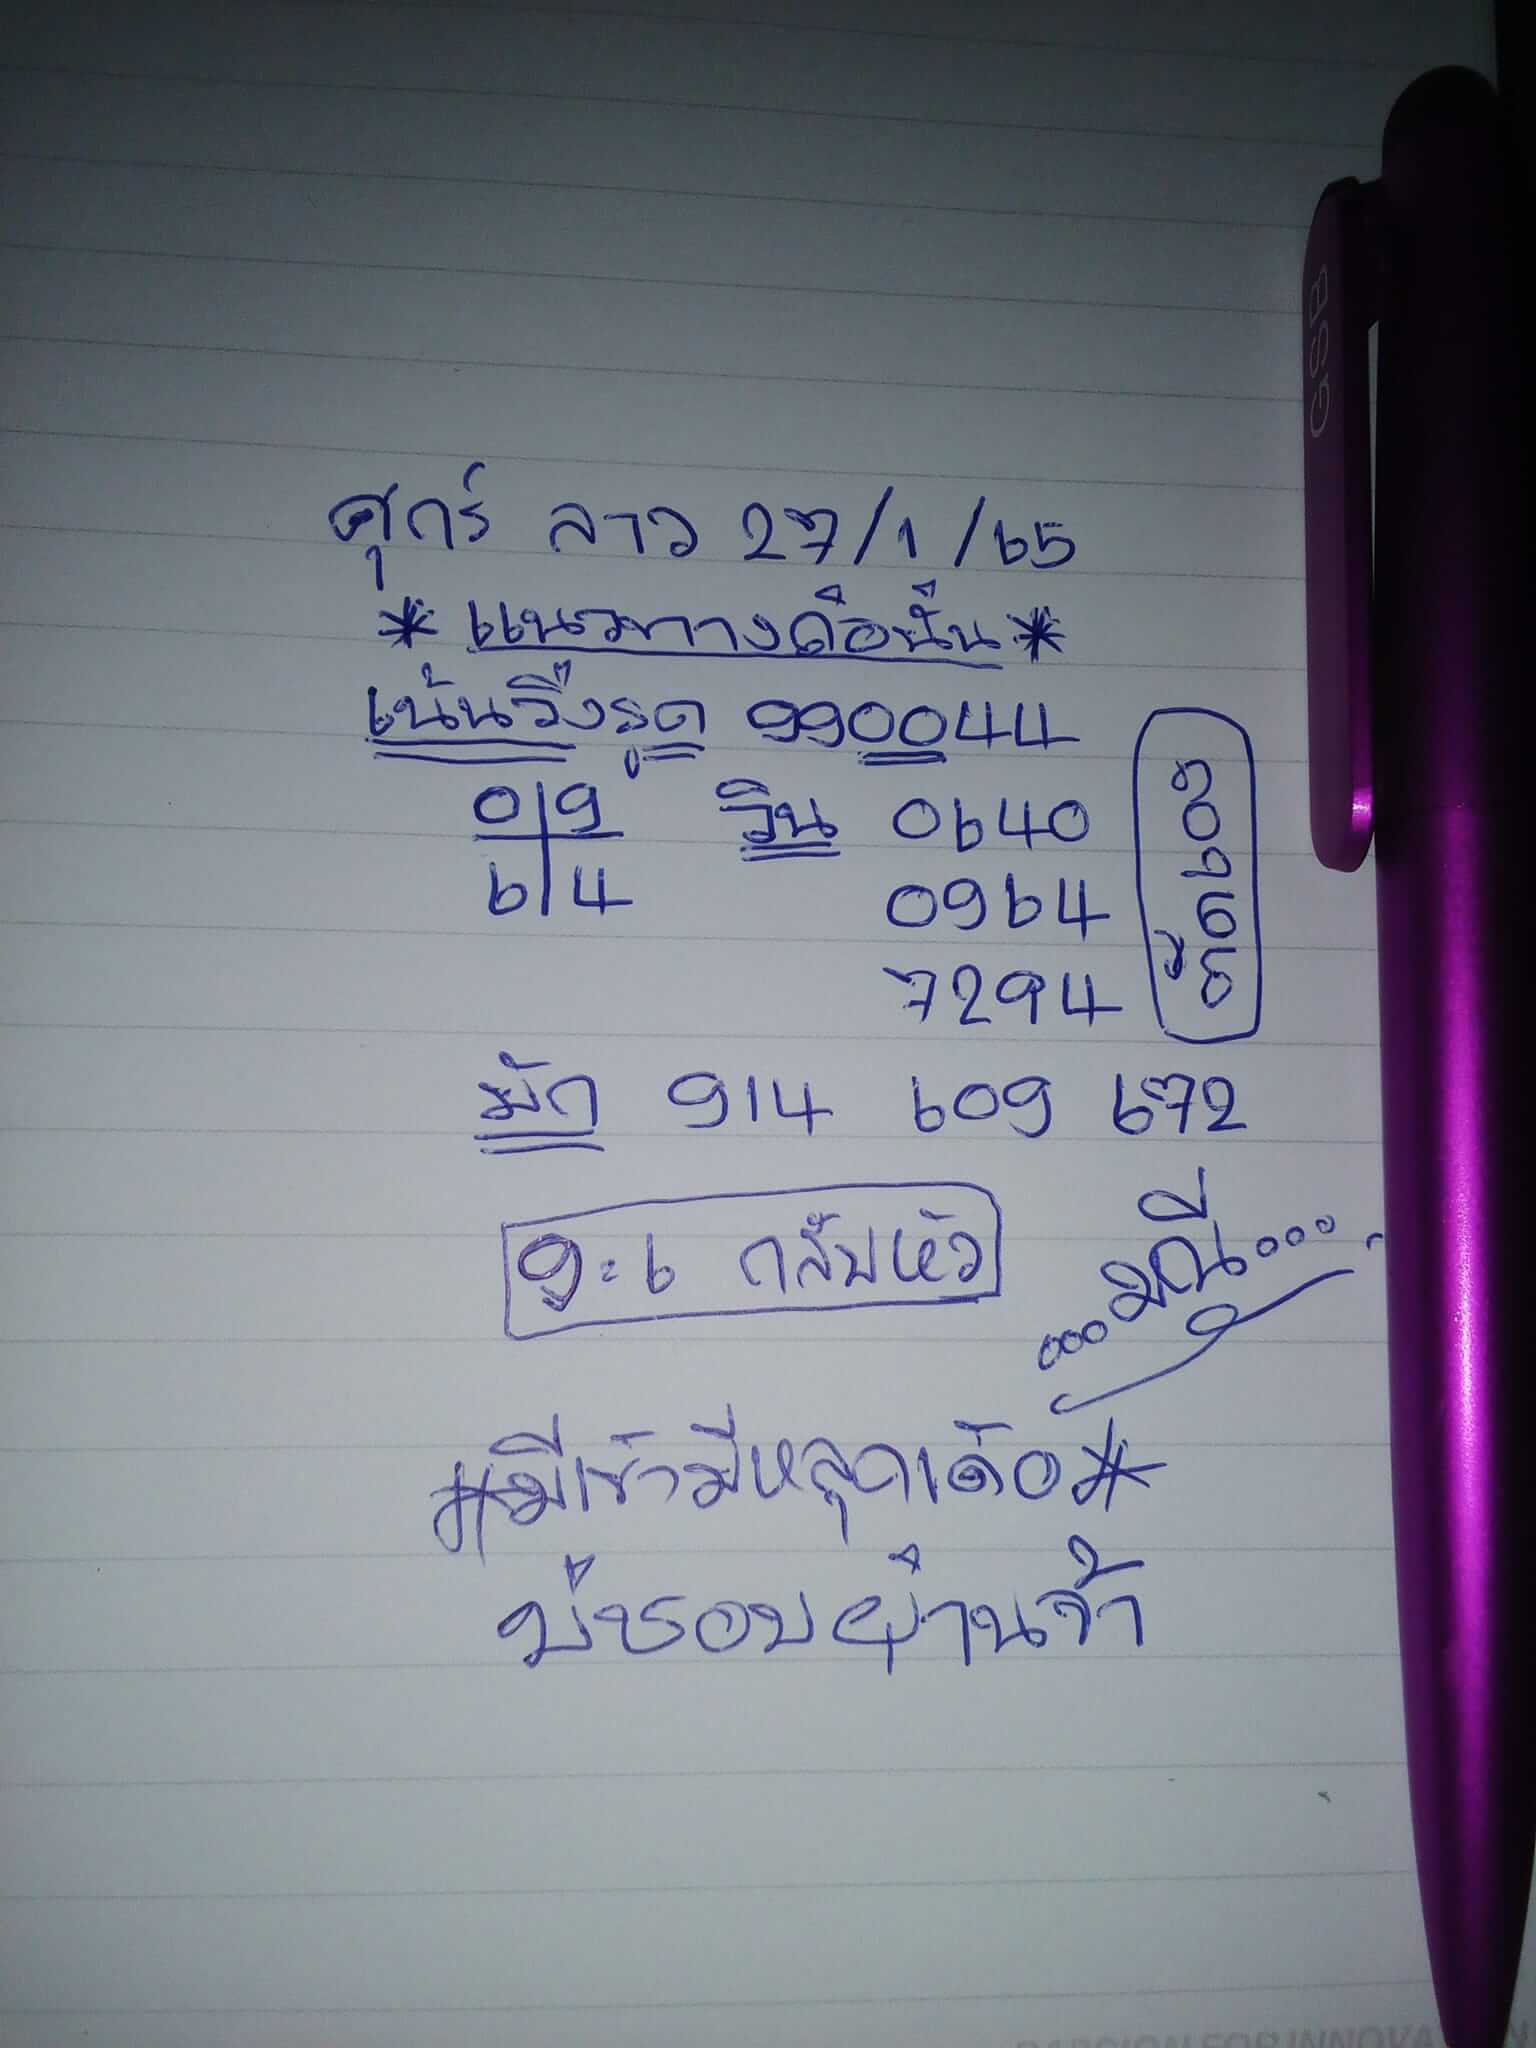 ศุกร์ ลาว 27/1/65
* แนวทางคือนั่น *
เน้นวิ่งรูด 990044
0|9 วิน 0640
6|4 0964
7294
ชอบจัด
มัก 914 609 672
9:6 กลับหัว
...มณี...
#มีเข้ามีหลุดเด้อ#
บ่ชอบผ่านจ้า
GSB
PASSION FOR INNOVATION